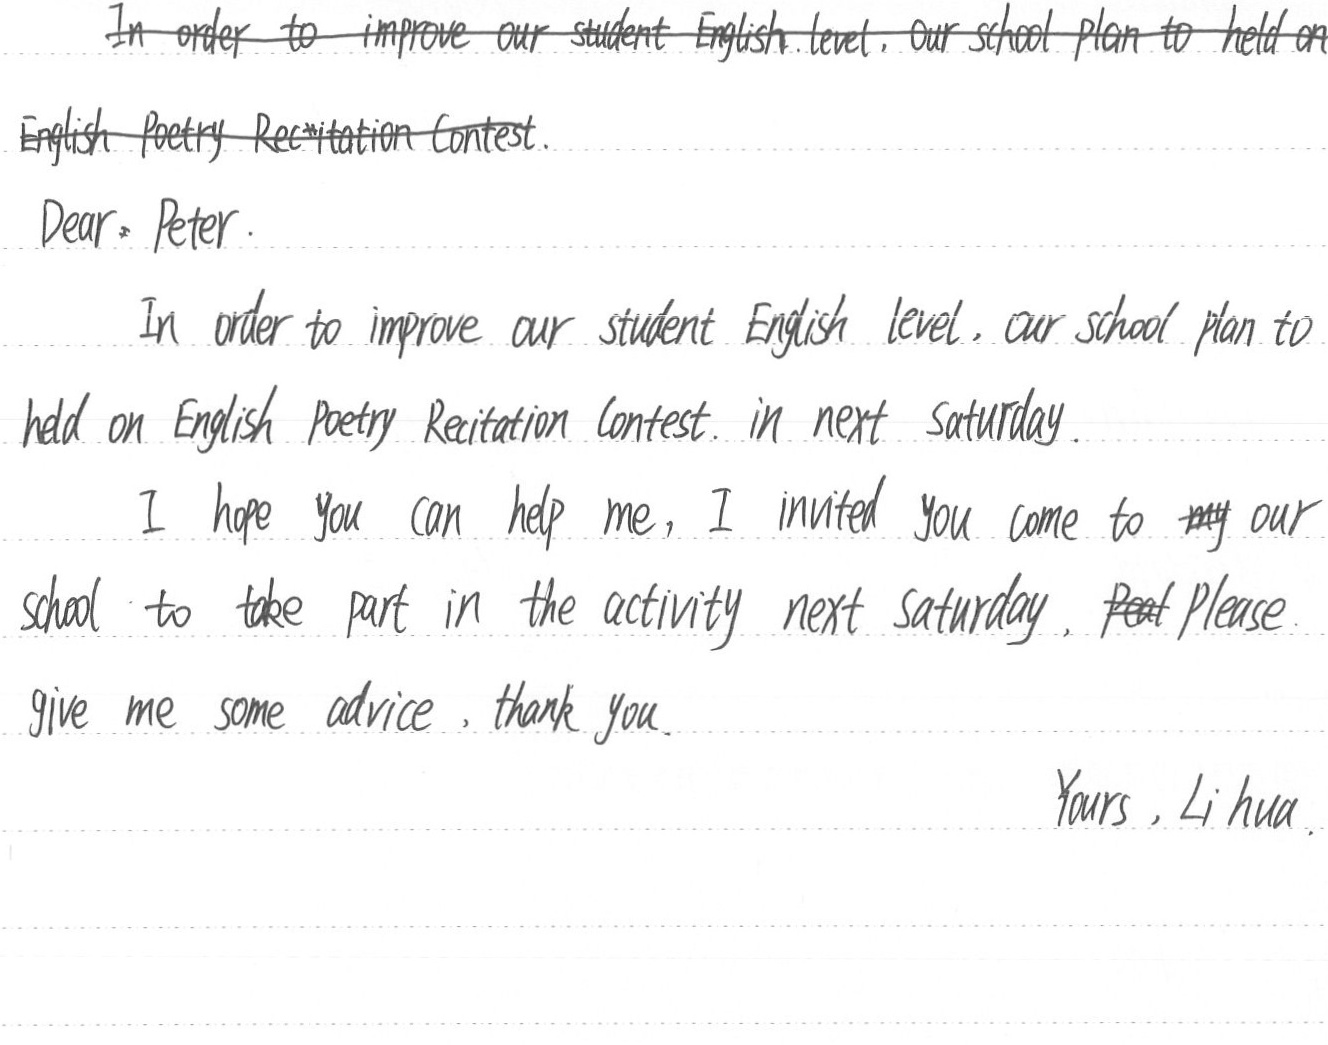 In order to improve our student English level, our school plan to held on
English Poetry Recitation Contest.
Dear. Peter.
In order to improve our student English level, our school plan to
held on English Poetry Recitation Contest. in next Saturday.
I hope you can help me, I invited you come to my our
school to take part in the activity next Saturday, Peat Please
give me some advice, thank you.
Yours, Li hua.